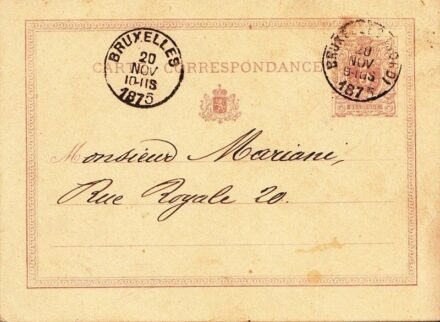 BRUXELLES
20
NOV
10-11S
1875
CARTE CORRESPONDANCE
BRUXELLES
20
NOV
9-10S
1875
Monsieur Mariani,
Rue Royale 20.